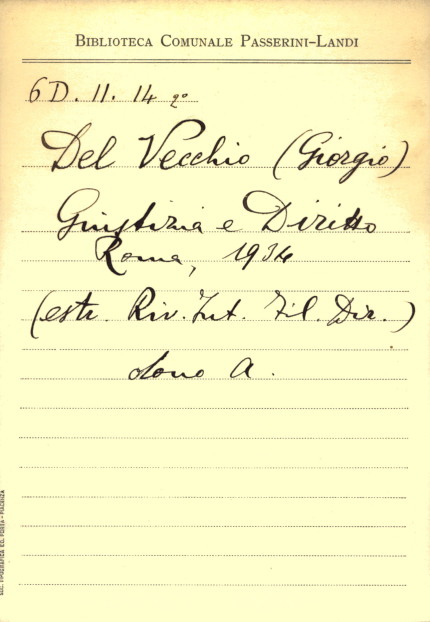 BIBLIOTECA COMUNALE PASSERINI-LANDI
6 D. 11. 14 2º
Del Vecchio (Giorgio)
Giustizia e Diritto
Roma, 1934
(estr. Riv. Int. Fil. Dir.)
dono A.
SOC. TIPOGRAFICA ED. PORTA - PIACENZA